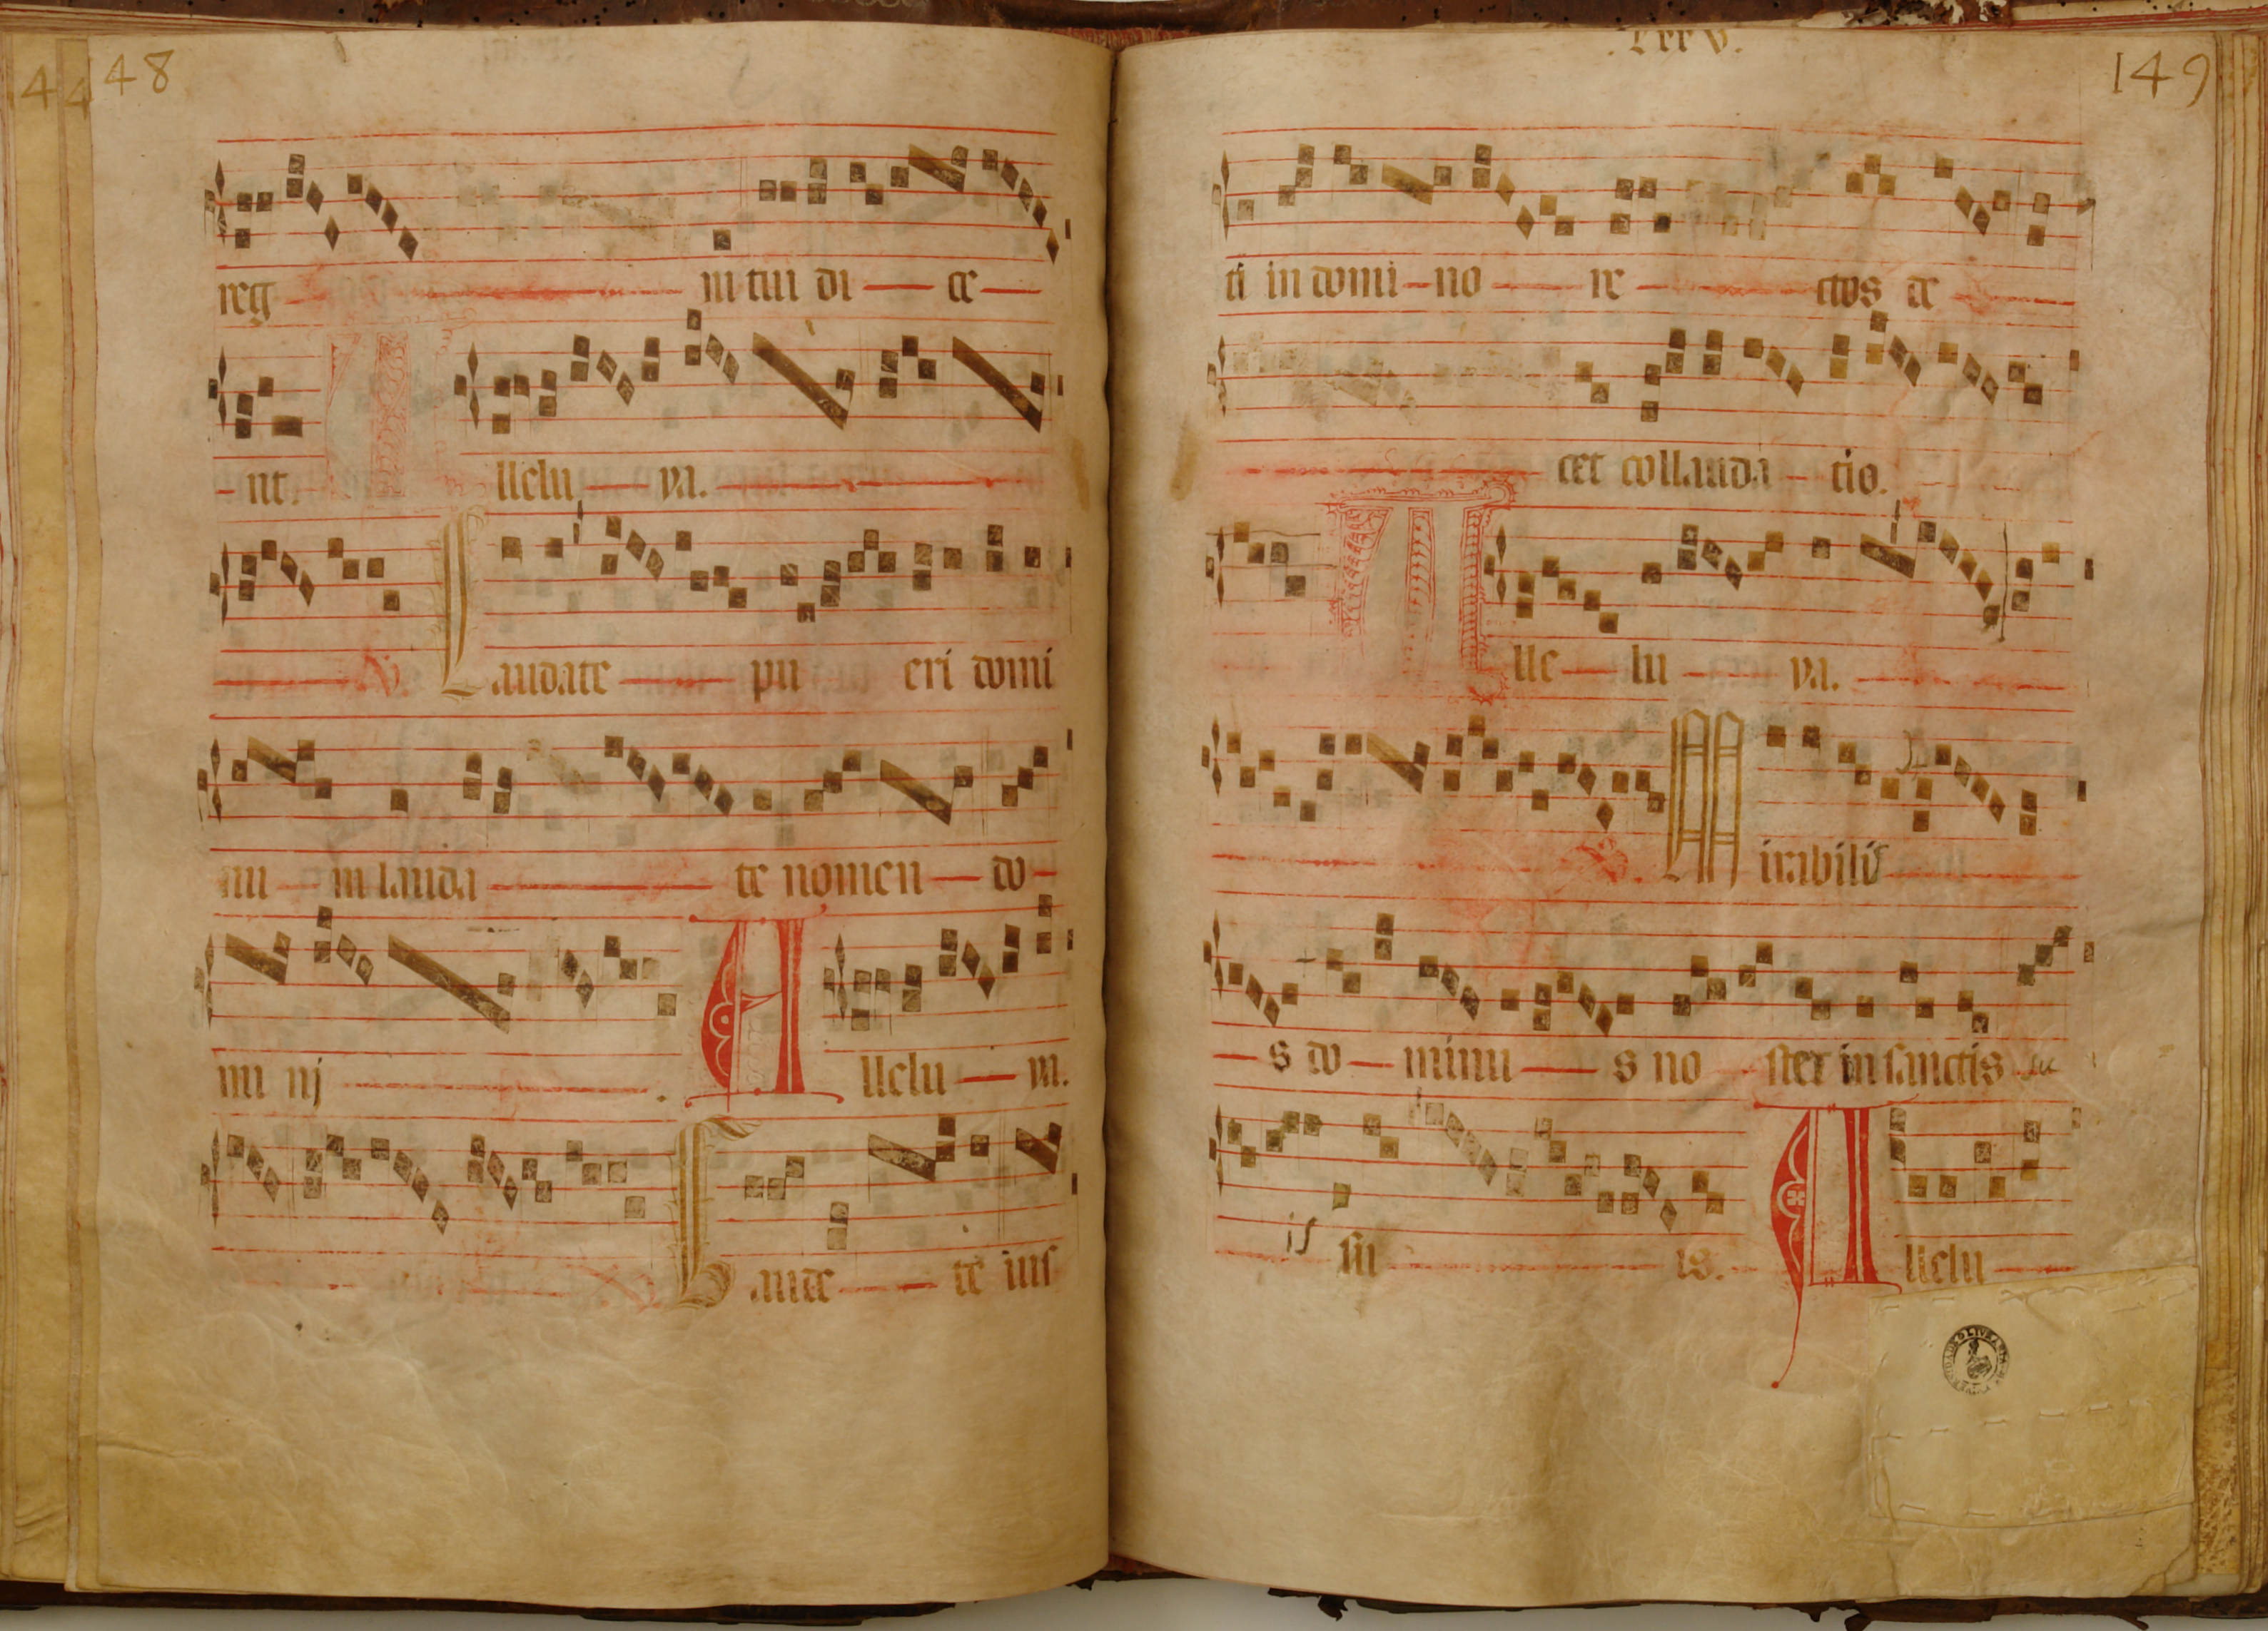 148
reg ni tui di ce
nt. Alleluya.
V. Laudate pueri domi
nu m lauda te nomen do
mi nj . Alleluya.
Gaude te ius
149
ti in domino re ctos de
cet collauda tio.
Alleluya.
V. Mirabilis
s do minu s no ster in sanctis su
is su is. Allelu